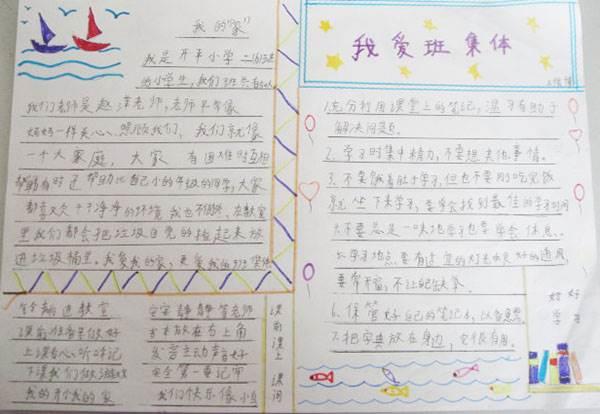 我的"家"
我是开平小学二(3)班
的小学生,我们班共有
我们老师是赵泽老师,老师平常像
妈妈一样关心、照顾我们,我们就像
一个大家庭,大家有困难时互相
帮助有时还帮助比自己小的年级的同学,大家
都喜欢干干净净的环境我也不例外,在教室
里我们都会把垃圾自觉的捡起来放
进垃圾桶里,我爱我的家,更爱我的班集体
进教室
课前准备要做好
上课专心听
下课我们做游戏
我的
安安静静等老师
放在右上角
发言主动声音好
安全第一要记牢
我们快乐像小鸟
课前课上课间
我爱班集体
1.充分利用课堂上的笔记,温习有助于
解决问题。
2.学习时集中精力,不要想其他事情。
3.不要饿着肚子学习,但也不要刚吃完饭
就坐下来学习,要学会找到最佳的学习时间
不要总是一味地学习也要学会休息。
学习地点要有适宜的灯光良好的通风,
要带
6.保管好自己的笔记本,以备
7.把字典放在身边,它很有用。
好好
学习